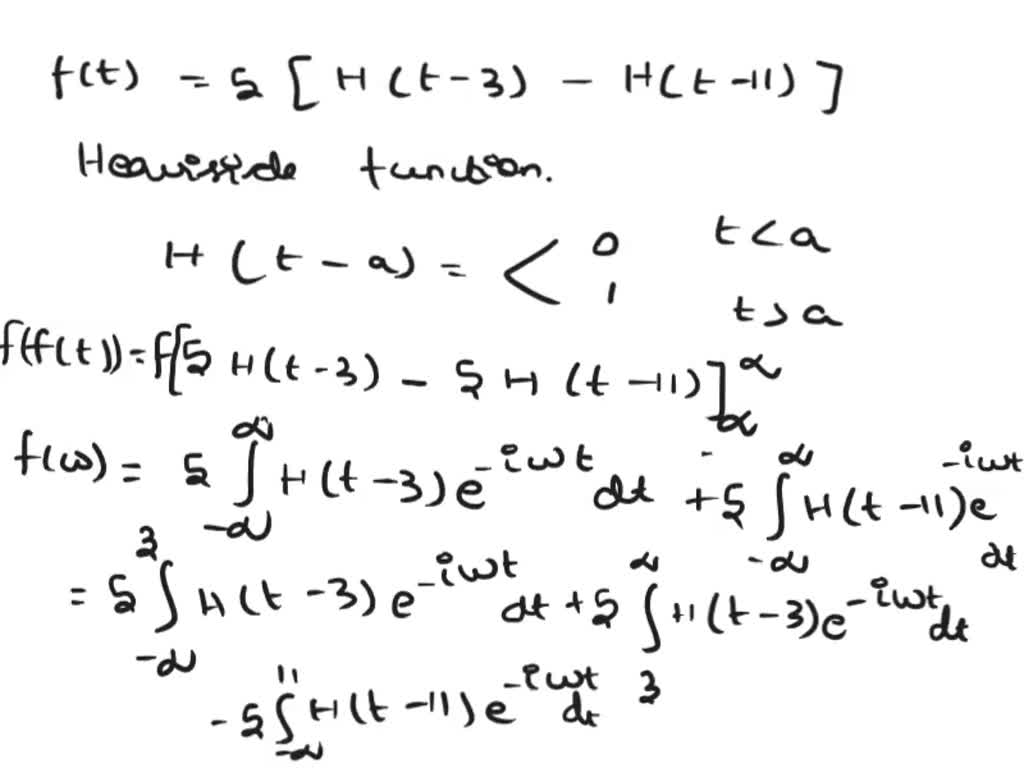 f(t) = 5 [ H(t-3) - H(t-11) ]
Heavisside function.
H(t-a) = < 0 t<a
1 t>a
f(f(t))=f[5 H(t-3) - 5 H(t-11)]^∞_∞
f(ω) = 5 ∫_{-∞}^{∞} H(t-3)e^{-iωt} dt + 5 ∫_{-∞}^{∞} H(t-11)e^{-iωt} dt
= 5 ∫_{-∞}^{3} H(t-3)e^{-iωt} dt + 5 ∫_{3}^{∞} H(t-3)e^{-iωt} dt
- 5 ∫_{-∞}^{11} H(t-11)e^{-iωt} dt